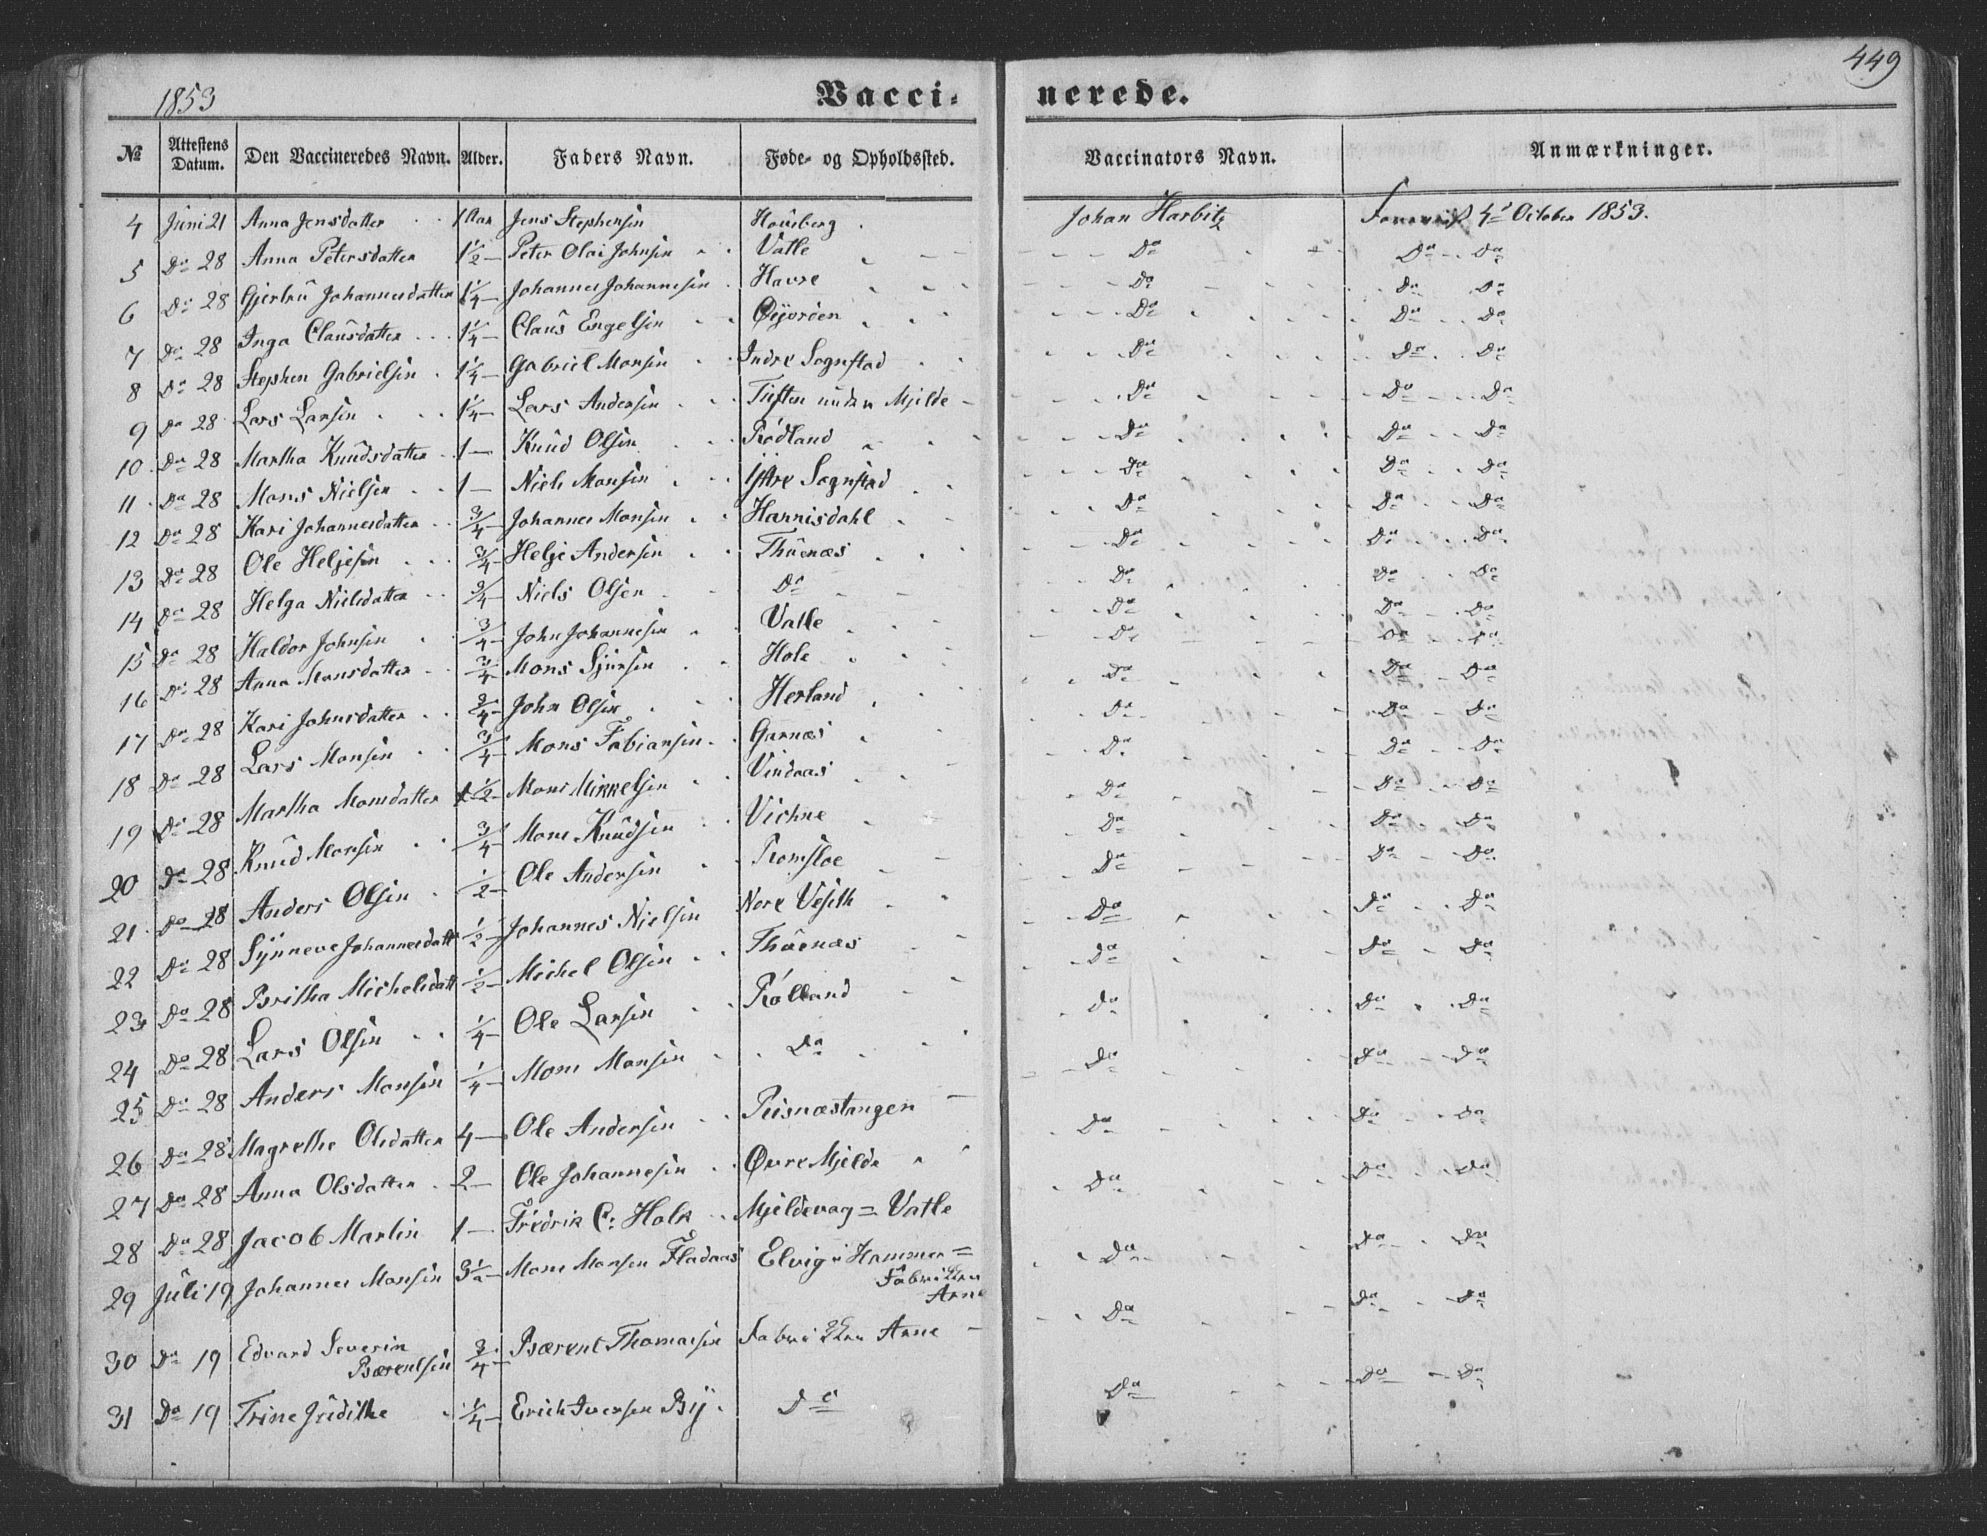 449
1853
Vacci- nerede.
№ Attestens Datum. Den Vaccineredes Navn. Alder. Faders Navn. Føde- og Opholdssted. Vaccinators Navn. Anmærkninger.
4 Juni 21 Anna Jensdatter 1 Aar Jens Stephensen Houeberg Johan Harbitz 4de October 1853.
5 Do 28 Anna Petersdatter 1½ Peter Olai Johnsen Vatle Do Do Do
6 Do 28 Gjertrü Johannesdatter 1¼ Johannes Johannesen Havre Do Do Do
7 Do 28 Inga Clausdatter 1¼ Claus Engelsen Øijorden Do Do Do
8 Do 28 Stephen Gabrielsen 1¼ Gabriel Monsen Indre Sognstad Do Do Do
9 Do 28 Lars Larsen 1¼ Lars Andersen Tuften under Mjelde Do Do Do
10 Do 28 Martha Knudsdatter 1 Knud Olsen Rødland Do Do Do
11 Do 28 Mons Nielsen 1 Niels Monsen Ijttre Sognstad Do Do Do
12 Do 28 Kari Johannesdatter ¾ Johannes Monsen Hannisdahl Do Do Do
13 Do 28 Ole Heljesen ¾ Helje Andersen Thuenæs Do Do Do
14 Do 28 Helga Nielsdatter ¾ Niels Olsen Do Do Do Do
15 Do 28 Haldor Johnsen ¾ John Johannesen Valle Do Do Do
16 Do 28 Anna Monsdatter ¾ Mons Sjursen Hole Do Do Do
17 Do 28 Kari Johnsdatter ¾ John Olsen Herland Do Do Do
18 Do 28 Lars Monsen ¾ Mons Fabiansen Garnæs Do Do Do
19 Do 28 Martha Monsdatter ½ Mons Mikkelsen Vindaas Do Do Do
20 Do 28 Knud Monsen ¾ Mons Knudsen Vichne Do Do Do
21 Do 28 Anders Olsen ½ Ole Andersen Romsloe Do Do Do
22 Do 28 Sÿnneve Johannesdatt ½ Johannes Nielsen Nore Do Do Do
23 Do 28 Britha Michelsdatt ½ Michel Olsen Thuenæs Do Do Do
24 Do 28 Lars Olsen ¼ Ole Larsen Rølland Do Do Do
25 Do 28 Anders Monsen ¼ Mons Monsen Do Do Do Do
26 Do 28 Magrethe Olsdatter 4 Ole Andersen Risnæstangen Do Do Do
27 Do 28 Anna Olsdatter 2 Ole Johannesen Øvre Mjelde Do Do Do
28 Do 28 Jacob Martin 1 Fredrik C: Holk Mjeldevag = Vatle Do Do Do
29 Juli 19 Johannes Monsen Mons Monsen Fladaas Elvig i Hammer=
Fabrikken
Arne Do Do Do
30 Do 19 Edvard Severin
Bærentsen ¾ Bærent Thomasen Fabrikken Arne Do Do Do
31 Do 19 Trine Judithe ¼ Erich Iversen Bÿ Do Do Do Do